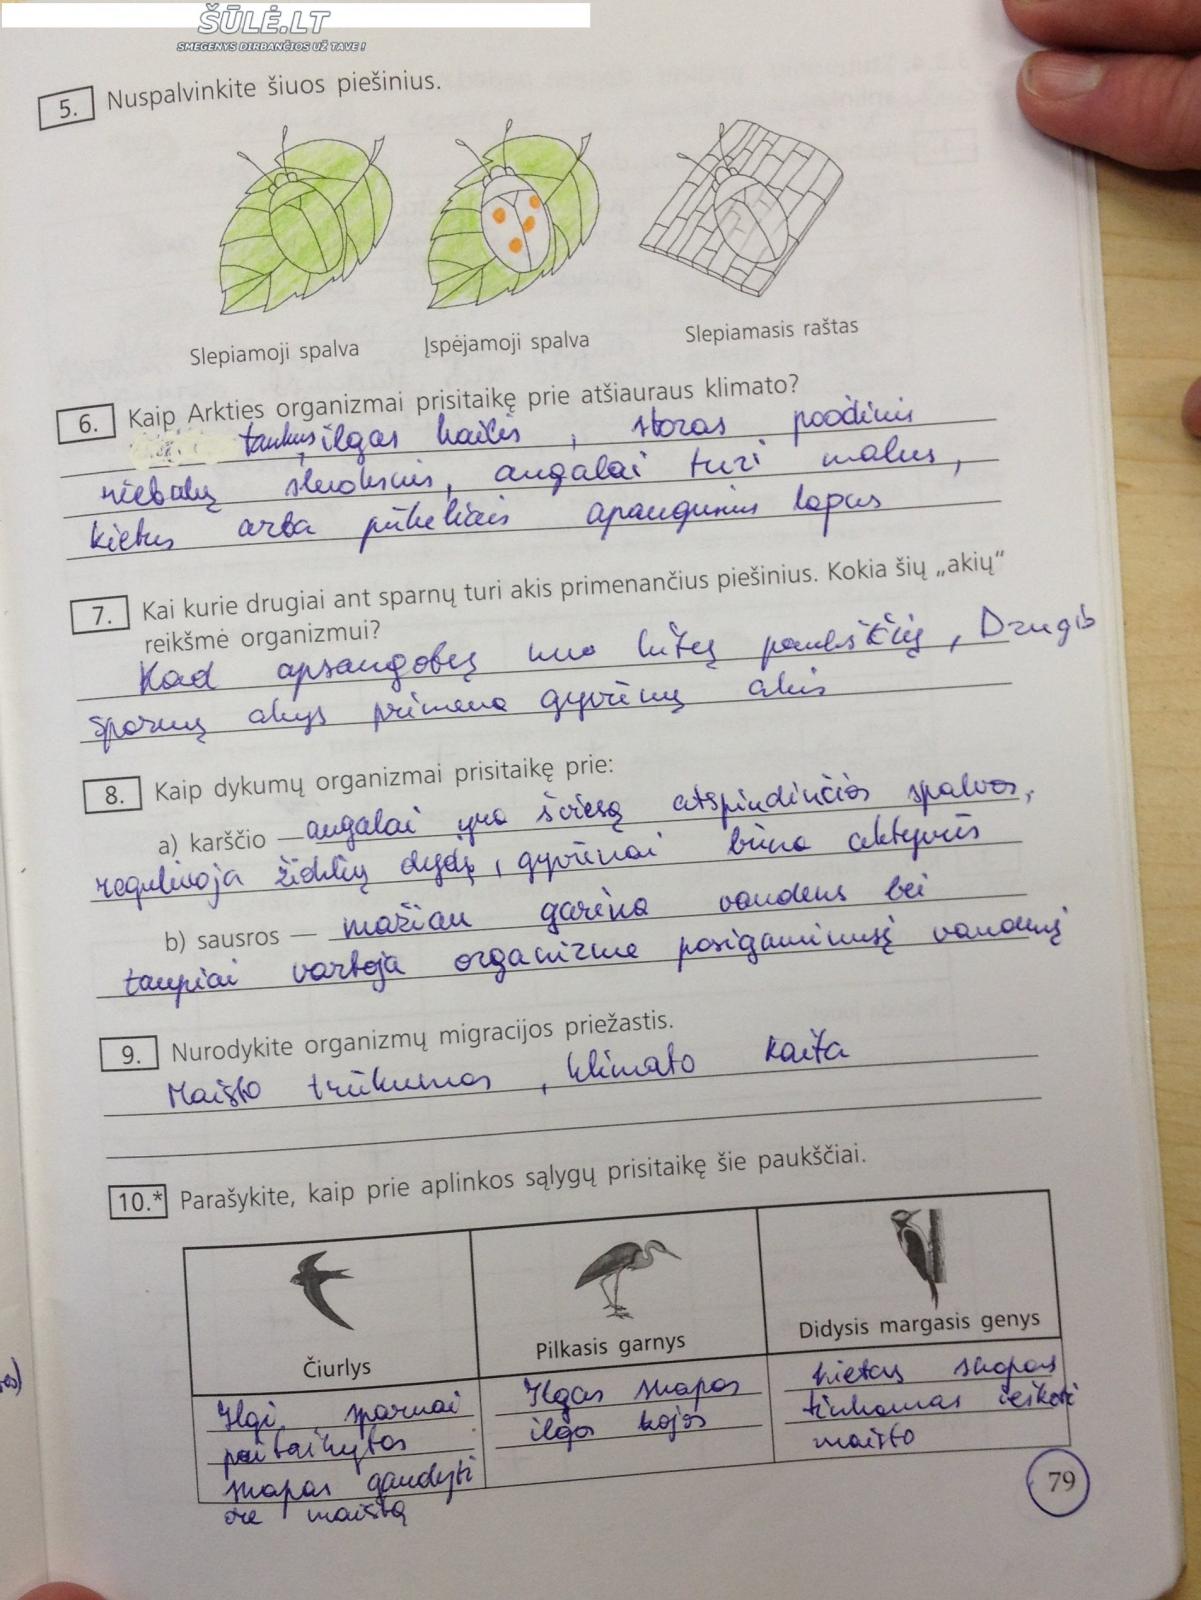 ŠŪLĖ.LT
SMEGENYS DIRBANČIOS UŽ TAVE !
5. Nuspalvinkite šiuos piešinius.
Slepiamoji spalva Įspėjamoji spalva Slepiamasis raštas
6. Kaip Arkties organizmai prisitaikę prie atšiauraus klimato?
tankus, ilgas kailis, storas poodinis
riebalų sluoksnis, augalai turi mažus,
kietus arba pūkeliais apaugusius lapus
7. Kai kurie drugiai ant sparnų turi akis primenančius piešinius. Kokia šių „akių“
reikšmė organizmui?
Kad apsaugotų nuo kitų paukščių, Drugio
sparnų akys primena gyvūnų akis
8. Kaip dykumų organizmai prisitaikę prie:
a) karščio — augalai yra šviesą atspindinčios spalvos,
reguliuoja žiotelių dydį, gyvūnai būna aktyvūs
b) sausros — mažiau garina vandens bei
taupiai vartoja organizme pasigaminusį vandenį
9. Nurodykite organizmų migracijos priežastis.
Maisto trūkumas, klimato kaita
10.* Parašykite, kaip prie aplinkos sąlygų prisitaikę šie paukščiai.
Čiurlys Pilkasis garnys Didysis margasis genys
Ilgi sparnai Ilgas snapas kietas snapas
pritaikytas ilgos kojos tinkamas ieškoti
snapas gaudyti maisto
ore maistą
79